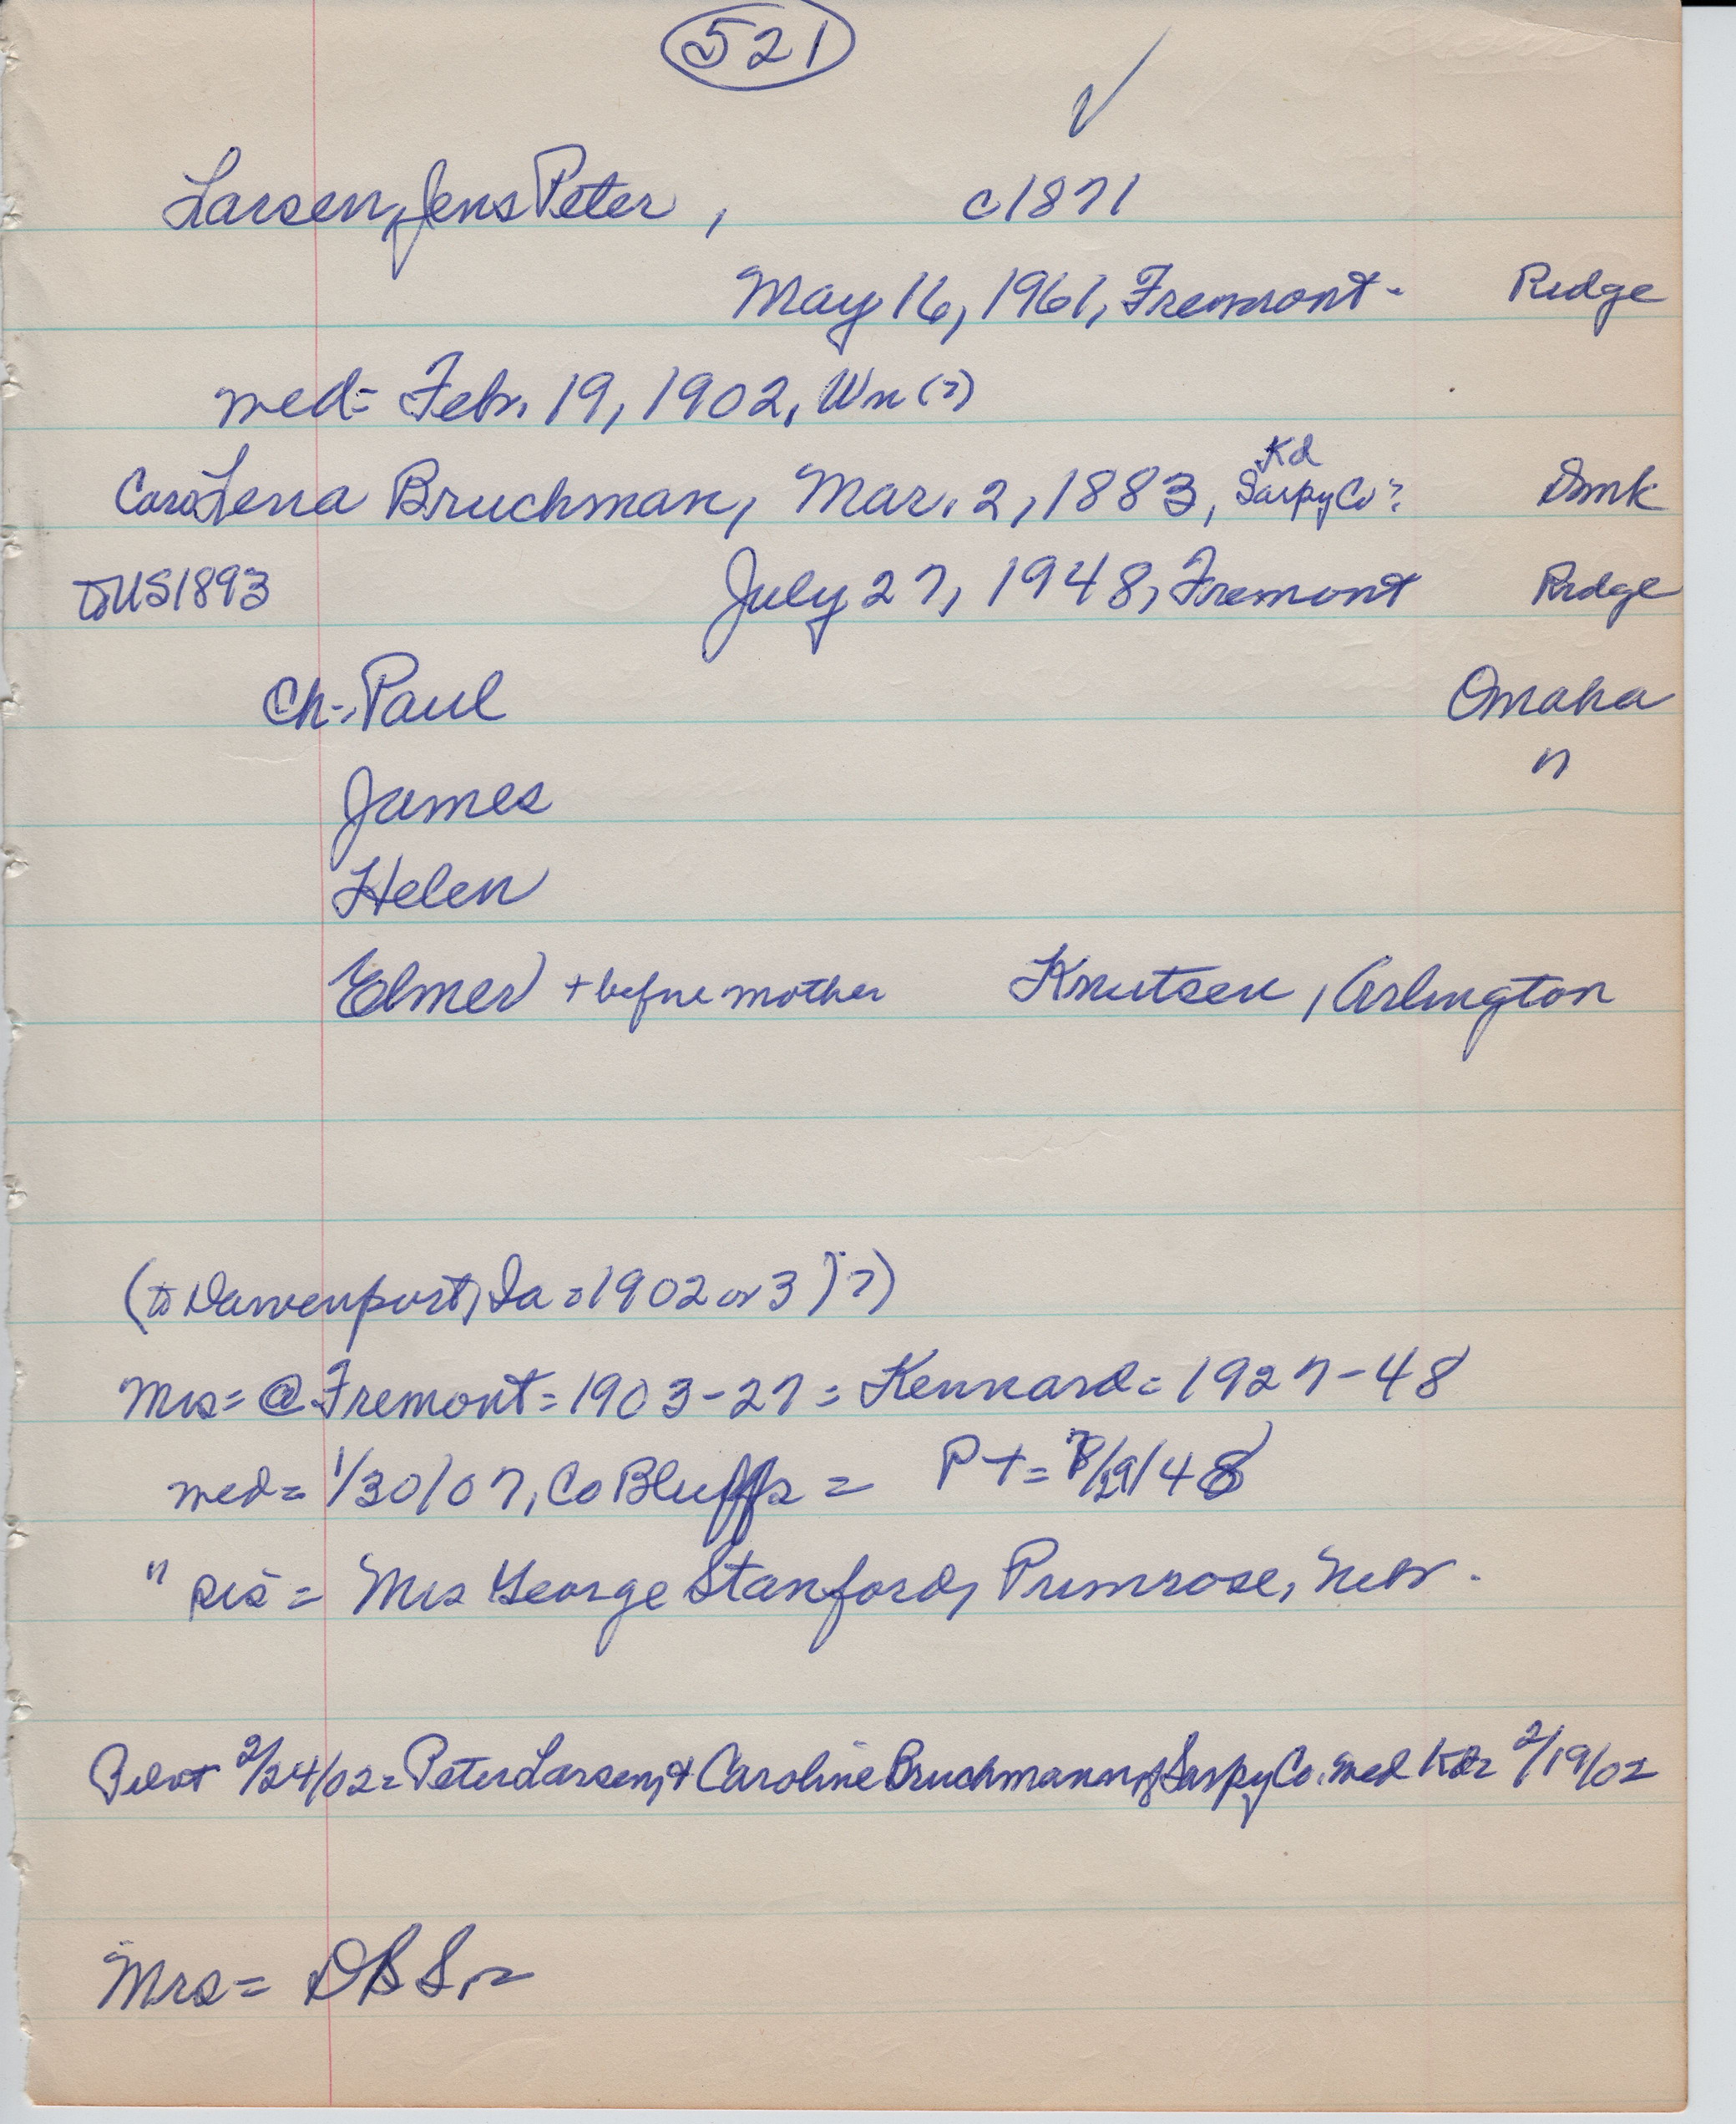 521
Larsen, Jens Peter, c1871
May 16, 1961, Fremont - Ridge
med= Febr. 19, 1902, Wn (?)
Kd
CaroLena Bruchman, Mar. 2, 1883, Sarpy Co? Dmk
to US 1893 July 27, 1948, Fremont Ridge
Ch-. Paul Omaha
James "
Helen
Elmer + before mother Knutsen, Arlington
(to Davenport, Ia = 1902 or 3) (?)
Mrs= @ Fremont = 1903-27 = Kennard = 1927-48
med= 1/30/07, Co Bluffs = P + = /29/48
" sis = Mrs George Stanford, Primrose, Nebr.
Pilot 2/24/02 = Peter Larsen, & Caroline Bruchmann, of Sarpy Co. med 2/19/02
Mrs =